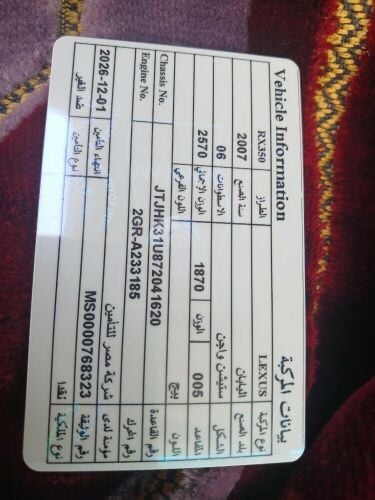 Vehicle Information بيانات المركبة
الطراز RX350 نوع المركبة LEXUS
سنة الصنع 2007 بلد الصنع اليابان
الاسطوانات 06 الشكل ستيشن واجن
الوزن الإجمالي 2570 الوزن 1870 المقاعد 005
اللون الفرعي اللون بيج
Chassis No. JTJHK31U872041620 رقم القاعدة
Engine No. 2GR-A233185 رقم المحرك
انتهاء التامين 2026-12-01 مؤمنة لدى شركة مصر للتامين
نوع التامين ضد الغير رقم الوثيقة MS0000768323
نوع الملكية نقدا